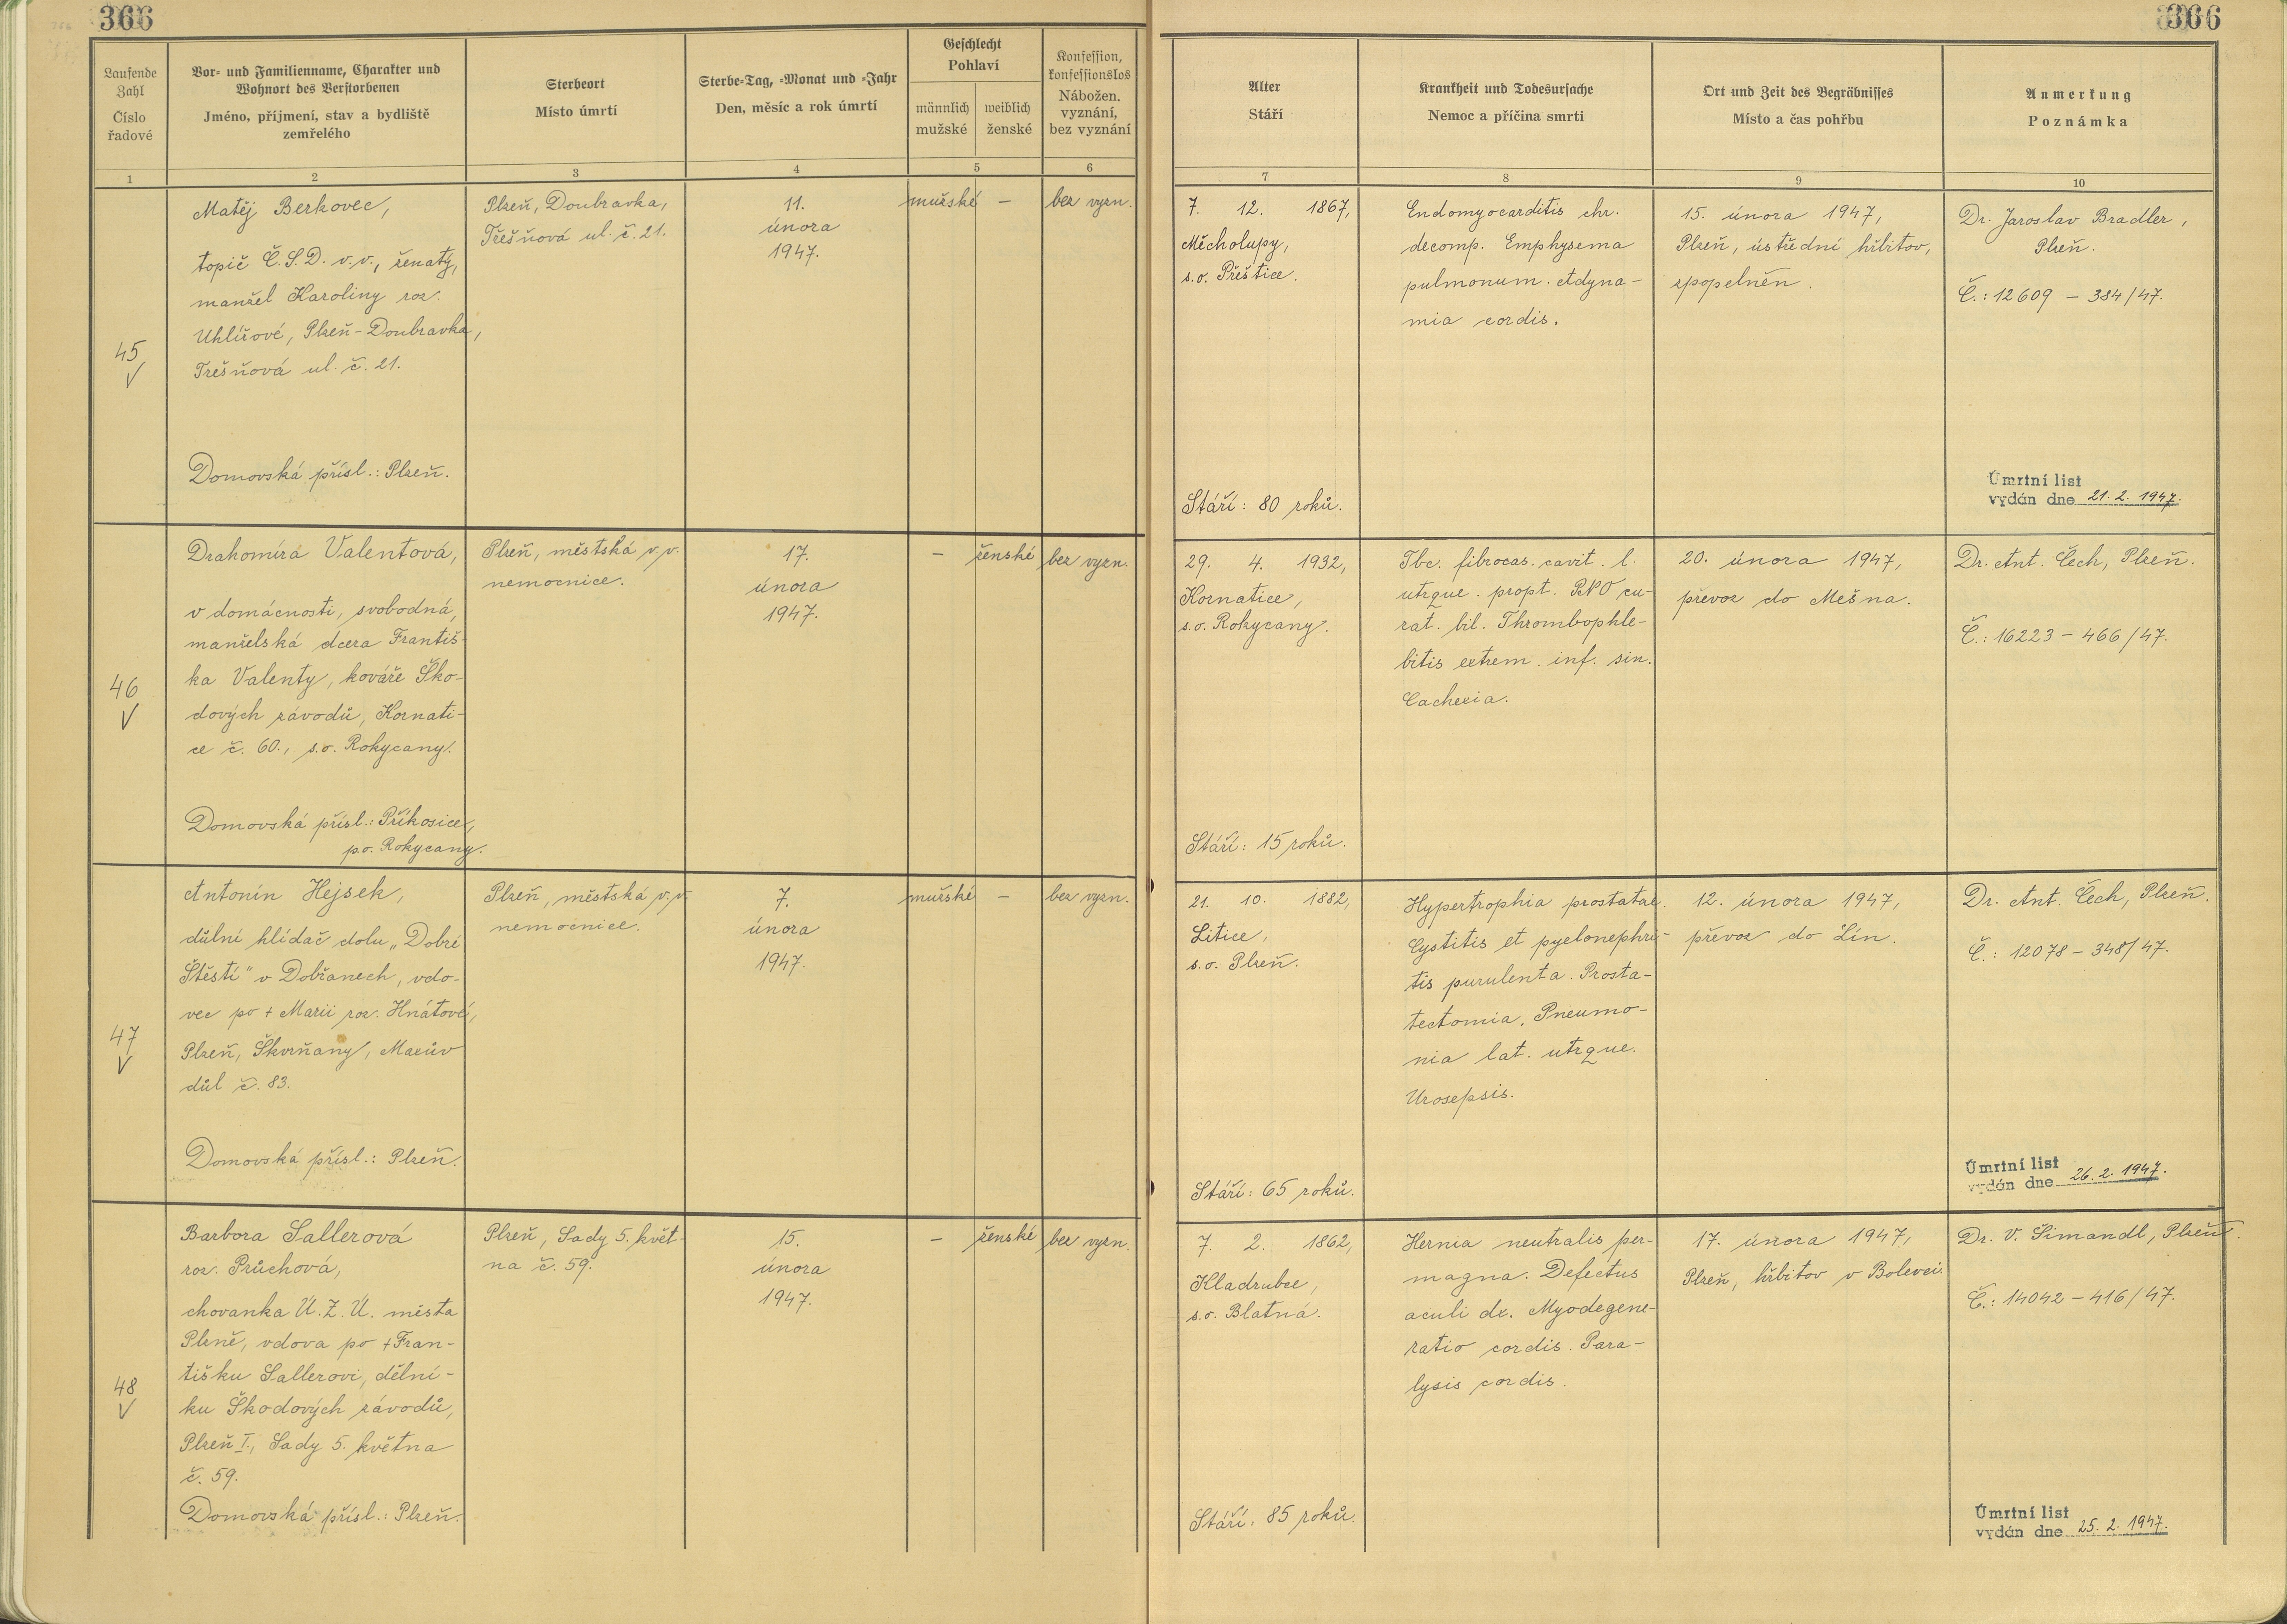 366
366
Laufende Zahl
Číslo řadové
Vor- und Familienname, Charakter und
Wohnort des Verstorbenen
Jméno, příjmení, stav a bydliště
zemřelého
Sterbeort
Místo úmrtí
Sterbe-Tag, -Monat und -Jahr
Den, měsíc a rok úmrtí
Geschlecht
Pohlaví
männlich
mužské
weiblich
ženské
Konfession,
konfessionslos
Nábožen.
vyznání,
bez vyznání
Alter
Stáří
Krankheit und Todesursache
Nemoc a příčina smrti
Ort und Zeit des Begräbnisses
Místo a čas pohřbu
Anmerkung
Poznámka
1
2
3
4
5
6
7
8
9
10
45
Matěj Berkovec,
topič Č.S.D. v.v., ženatý,
manžel Karoliny roz.
Uhlířové, Plzeň-Doubravka,
Třešňová ul. č. 21.
Domovská přísl.: Plzeň.
Plzeň, Doubravka,
Třešňová ul. č. 21.
11.
února
1947.
mužské
–
bez vyzn.
7. 12. 1867,
Měcholupy,
s.o. Přeštice.
Stáří: 80 roků.
Endomyocarditis chr.
decomp. Emphysema
pulmonum. Adyna-
mia cordis.
15. února 1947,
Plzeň, ústřední hřbitov,
zpopelněn.
Dr. Jaroslav Bradler,
Plzeň.
Č.: 12609 – 384/47.
Úmrtní list
vydán dne 21. 2. 1947.
46
Drahomíra Valentová,
v domácnosti, svobodná,
manželská dcera Františ-
ka Valenty, kováře Ško-
dových závodů, Kornati-
ce č. 60., s.o. Rokycany.
Domovská přísl.: Příkosice,
p.o. Rokycany.
Plzeň, městská v.v.
nemocnice.
17.
února
1947.
–
ženské
bez vyzn.
29. 4. 1932,
Kornatice,
s.o. Rokycany.
Stáří: 15 roků.
Tbc. fibrocas. cavit. l.
utrque. propt. PNO cu-
rat. bil. Thrombophle-
bitis extrem. inf. sin.
Cachexia.
20. února 1947,
převoz do Mešna.
Dr. Ant. Čech, Plzeň.
Č.: 16223 – 466/47.
47
Antonín Hejsek,
důlní hlídač dolu „Dobré
Štěstí" v Dobřanech, vdo-
vec po + Marii roz. Hnátové,
Plzeň, Škvrňany, Maxův
důl č. 83.
Domovská přísl.: Plzeň.
Plzeň, městská v.v.
nemocnice.
7.
února
1947.
mužské
–
bez vyzn.
21. 10. 1882,
Litice,
s.o. Plzeň.
Stáří: 65 roků.
Hypertrophia prostatae.
Cystitis et pyelonephri-
tis purulenta. Prosta-
tectomia. Pneumo-
nia lat. utrque.
Urosepsis.
12. února 1947,
převoz do Lín.
Dr. Ant. Čech, Plzeň.
Č.: 12078 – 348/47.
Úmrtní list
vydán dne 26. 2. 1947.
48
Barbora Sallerová
roz. Průchová,
chovanka Ú.Z.Ú. města
Plzně, vdova po + Fran-
tišku Sallerovi, dělní-
ku Škodových závodů,
Plzeň I., Sady 5. května
č. 59.
Domovská přísl.: Plzeň.
Plzeň, Sady 5. květ-
na č. 59.
15.
února
1947.
–
ženské
bez vyzn.
7. 2. 1862,
Kladrubce,
s.o. Blatná.
Stáří: 85 roků.
Hernia neutralis per-
magna. Defectus
aculi dx. Myodegene-
ratio cordis. Para-
lysis cordis.
17. února 1947,
Plzeň, hřbitov v Bolevci.
Dr. V. Simandl, Plzeň.
Č.: 14042 – 416/47.
Úmrtní list
vydán dne 25. 2. 1947.